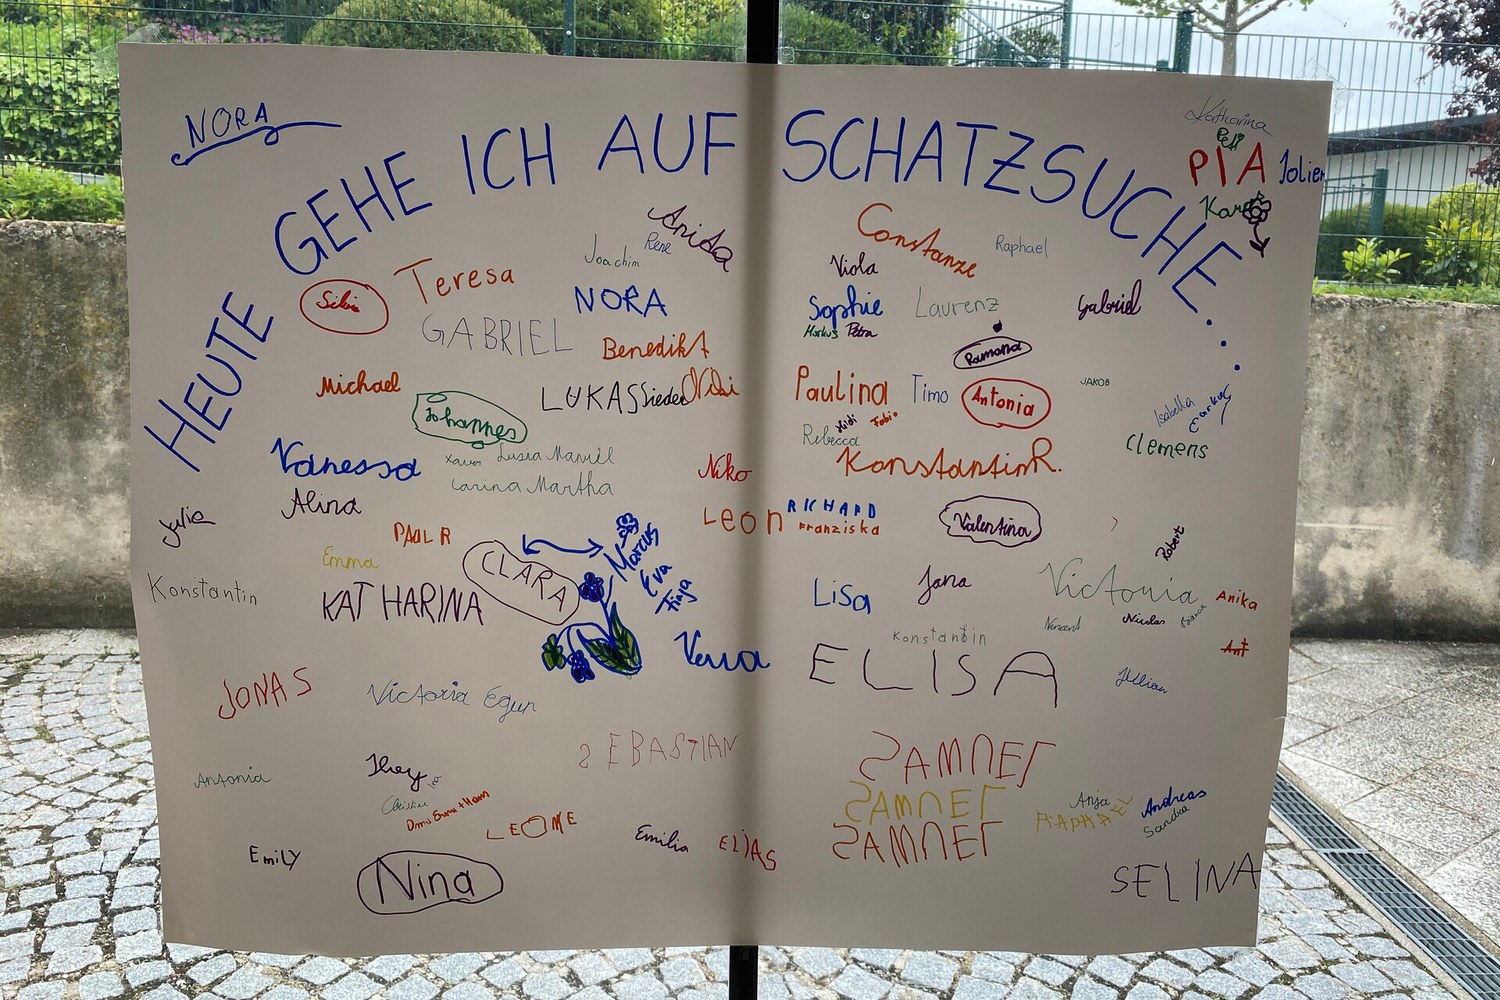 NORA
HEUTE GEHE ICH AUF SCHATZSUCHE...
Katharina
PIA
Anita
Rene
Joachim
Constanze
Raphael
Viola
Teresa
NORA
Sophie
Laurenz
Gabriel
Markus Petra
GABRIEL
Benedikt
Ramona
Michael
LUKAS
Paulina
Timo
Antonia
JAKOB
Johannes
Heidi
Fabio
Isabella
Rebecca
Clemens
Vanessa
Xaver
Niko
Konstantin R.
Carina Martha
Alina
Julia
Leon
RICHARD
Franziska
Valentina
PAUL R
Emma
CLARA
Marcus
Eva
Finja
Robert
Konstantin
KATHARINA
Lisa
Jana
Victoria
Anika
Vincent
Nicolas
Verena
Konstantin
ELISA
Ant
JONAS
Victoria Egun
Jillian
SEBASTIAN
SAMUEL
Antonia
Christine
SAMUEL
Anja
RAPHAEL
Andreas
Sandra
LEONIE
Emilia
ELIAS
SAMUEL
EmilY
Nina
SELINA